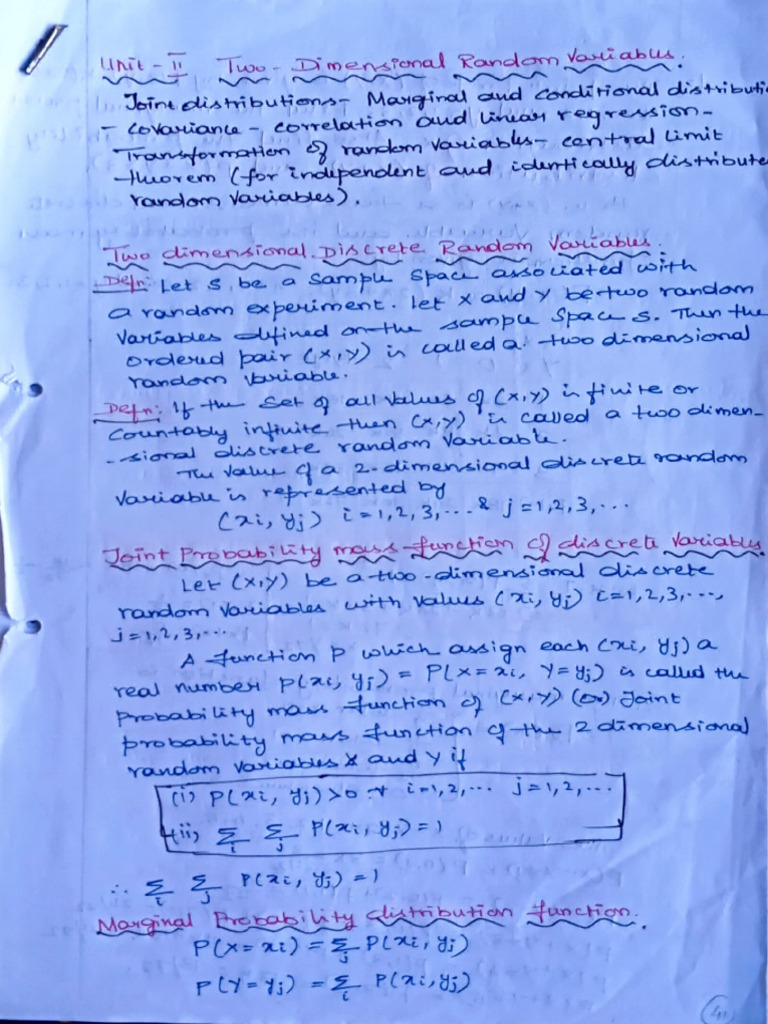 Unit - II Two - Dimensional Random Variables.
Joint distributions - Marginal and conditional distributi
- covariance - correlation and linear regression -
Transformation of random variables - central limit
theorem (for independent and identically distribute
random variables).
Two dimensional Discrete Random Variables.
Defn: Let S be a sample space associated with
a random experiment. Let X and Y be two random
variables defined on the sample space S. Then the
ordered pair (X,Y) is called a two dimensional
random variable.
Defn: If the set of all values of (X,Y) is finite or
countably infinite then (X,Y) is called a two dimen-
-sional discrete random variable.
The value of a 2-dimensional discrete random
variable is represented by
(xi, yj) i=1,2,3,... & j=1,2,3,...
Joint Probability mass function of discrete variables.
Let (X,Y) be a two-dimensional discrete
random variables with values (xi, yj) i=1,2,3,...,
j=1,2,3,...
A function P which assign each (xi, yj) a
real number P(xi, yj) = P(X=xi, Y=yj) is called the
probability mass function of (X,Y) (or) Joint
probability mass function of the 2 dimensional
random variables X and Y if
(i) P(xi, yj)>0 ∀ i=1,2,... j=1,2,...
(ii) Σi Σj P(xi, yj)=1
∴ Σi Σj P(xi, yj)=1
Marginal Probability distribution function.
P(X=xi) = Σj P(xi, yj)
P(Y=yj) = Σi P(xi, yj)